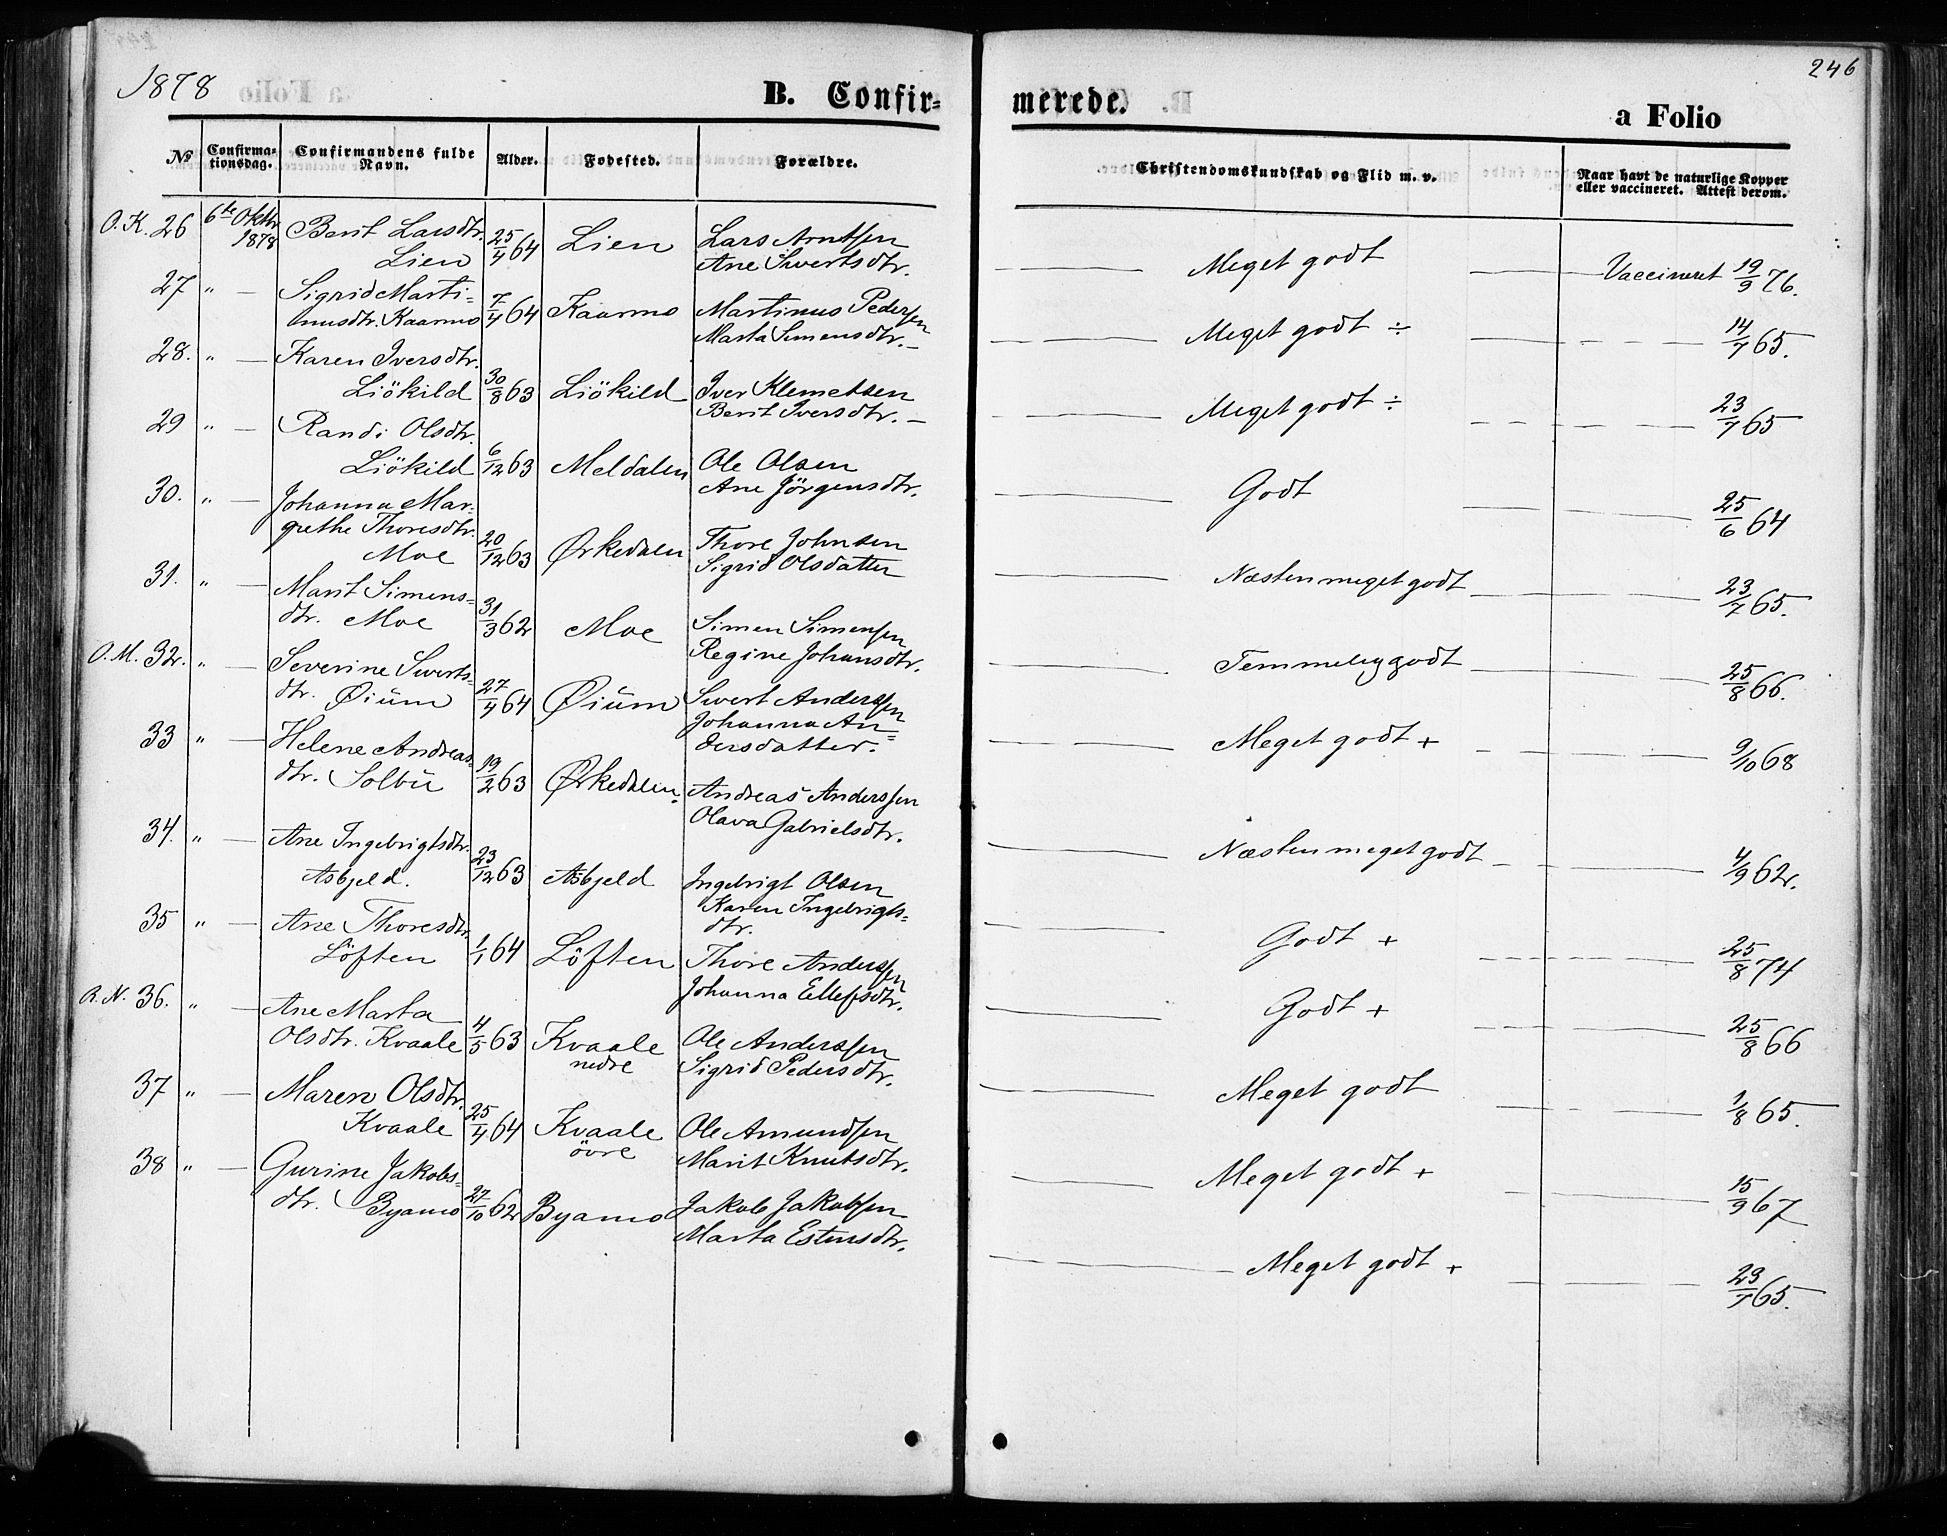 1878
B. Confir-
merede.
246
a Folio
No
Confirma-
tionsdag.
Confirmandens fulde
Navn.
Alder.
Fødested.
Forældre.
Christendomskundskab og Flid m. v.
Naar havt de naturlige Kopper
eller vaccineret. Attest derom.
O.K. 26 6te Oktbr Berit Larsdtr. 25/4 64 Lien Lars Arntsen
1878 Lien Ane Sivertsdtr.
Meget godt Vaccineret 19/9 76.
27 " Sigrid Marti-
nusdtr. Kaarmo 7/4 64 Kaarmo Martinus Pedersen
Marta Simensdtr. —
Meget godt ÷ 14/7 65.
28. " Karen Iversdtr.
Liökild 30/8 63 Liökild Iver Klemetsen
Berit Iversdtr. —
Meget godt ÷ 23/7 65
29 " Randi Olsdtr.
Liökild 6/12 63 Meldalen Ole Olsen
Ane Jörgensdtr.
Godt 25/6 64
30. " Johanna Mar-
grethe Thoresdtr.
Moe 20/12 63 Ørkedalen Thore Johnsen
Sigrid Olsdatter
Næsten meget godt 23/7 65.
31. " Marit Simens-
dtr. Moe 31/3 62 Moe Simen Simensen
Regine Johansdtr.
Temmelig godt 25/8 66.
O.M. 32. " Severine Siverts-
dtr. Øium 27/4 64 Øium Sivert Anderssen
Johanna An-
dersdatter.
Meget godt + 9/10 68
33 " Helene Andreas-
dtr. Solbu 19/2 63 Ørkedalen. Andreas Anderssen
Olava Gabrielsdtr.
Næsten meget godt 4/9 62.
34. " Ane Ingebrigtsdtr.
Asbjeld. 23/12 63 Asbjeld Ingebrigt Olsen
Karen Ingebrigts-
dtr.
Godt + 25/8 74
35 " Ane Thoresdtr.
Löften 1/1 64 Löften Thore Anderssen
Johanna Ellefsdtr.
Godt + 25/8 66
R.N. 36. " Ane Marta
Olsdtr. Kvaale 4/5 63 Kvaale Ole Anderssen
nedre Sigrid Pedersdtr.
Meget godt 1/8 65.
37 " Maren Olsdtr.
Kvaale 25/4 64 Kvaale Ole Amundsen
övre Marit Knutsdtr.
Meget godt + 15/9 67
38 " Gurine Jakobs-
dtr. Byamo 27/10 62 Byamo Jakob Jakobsen
Marta Estensdtr.
Meget godt + 23/7 65.